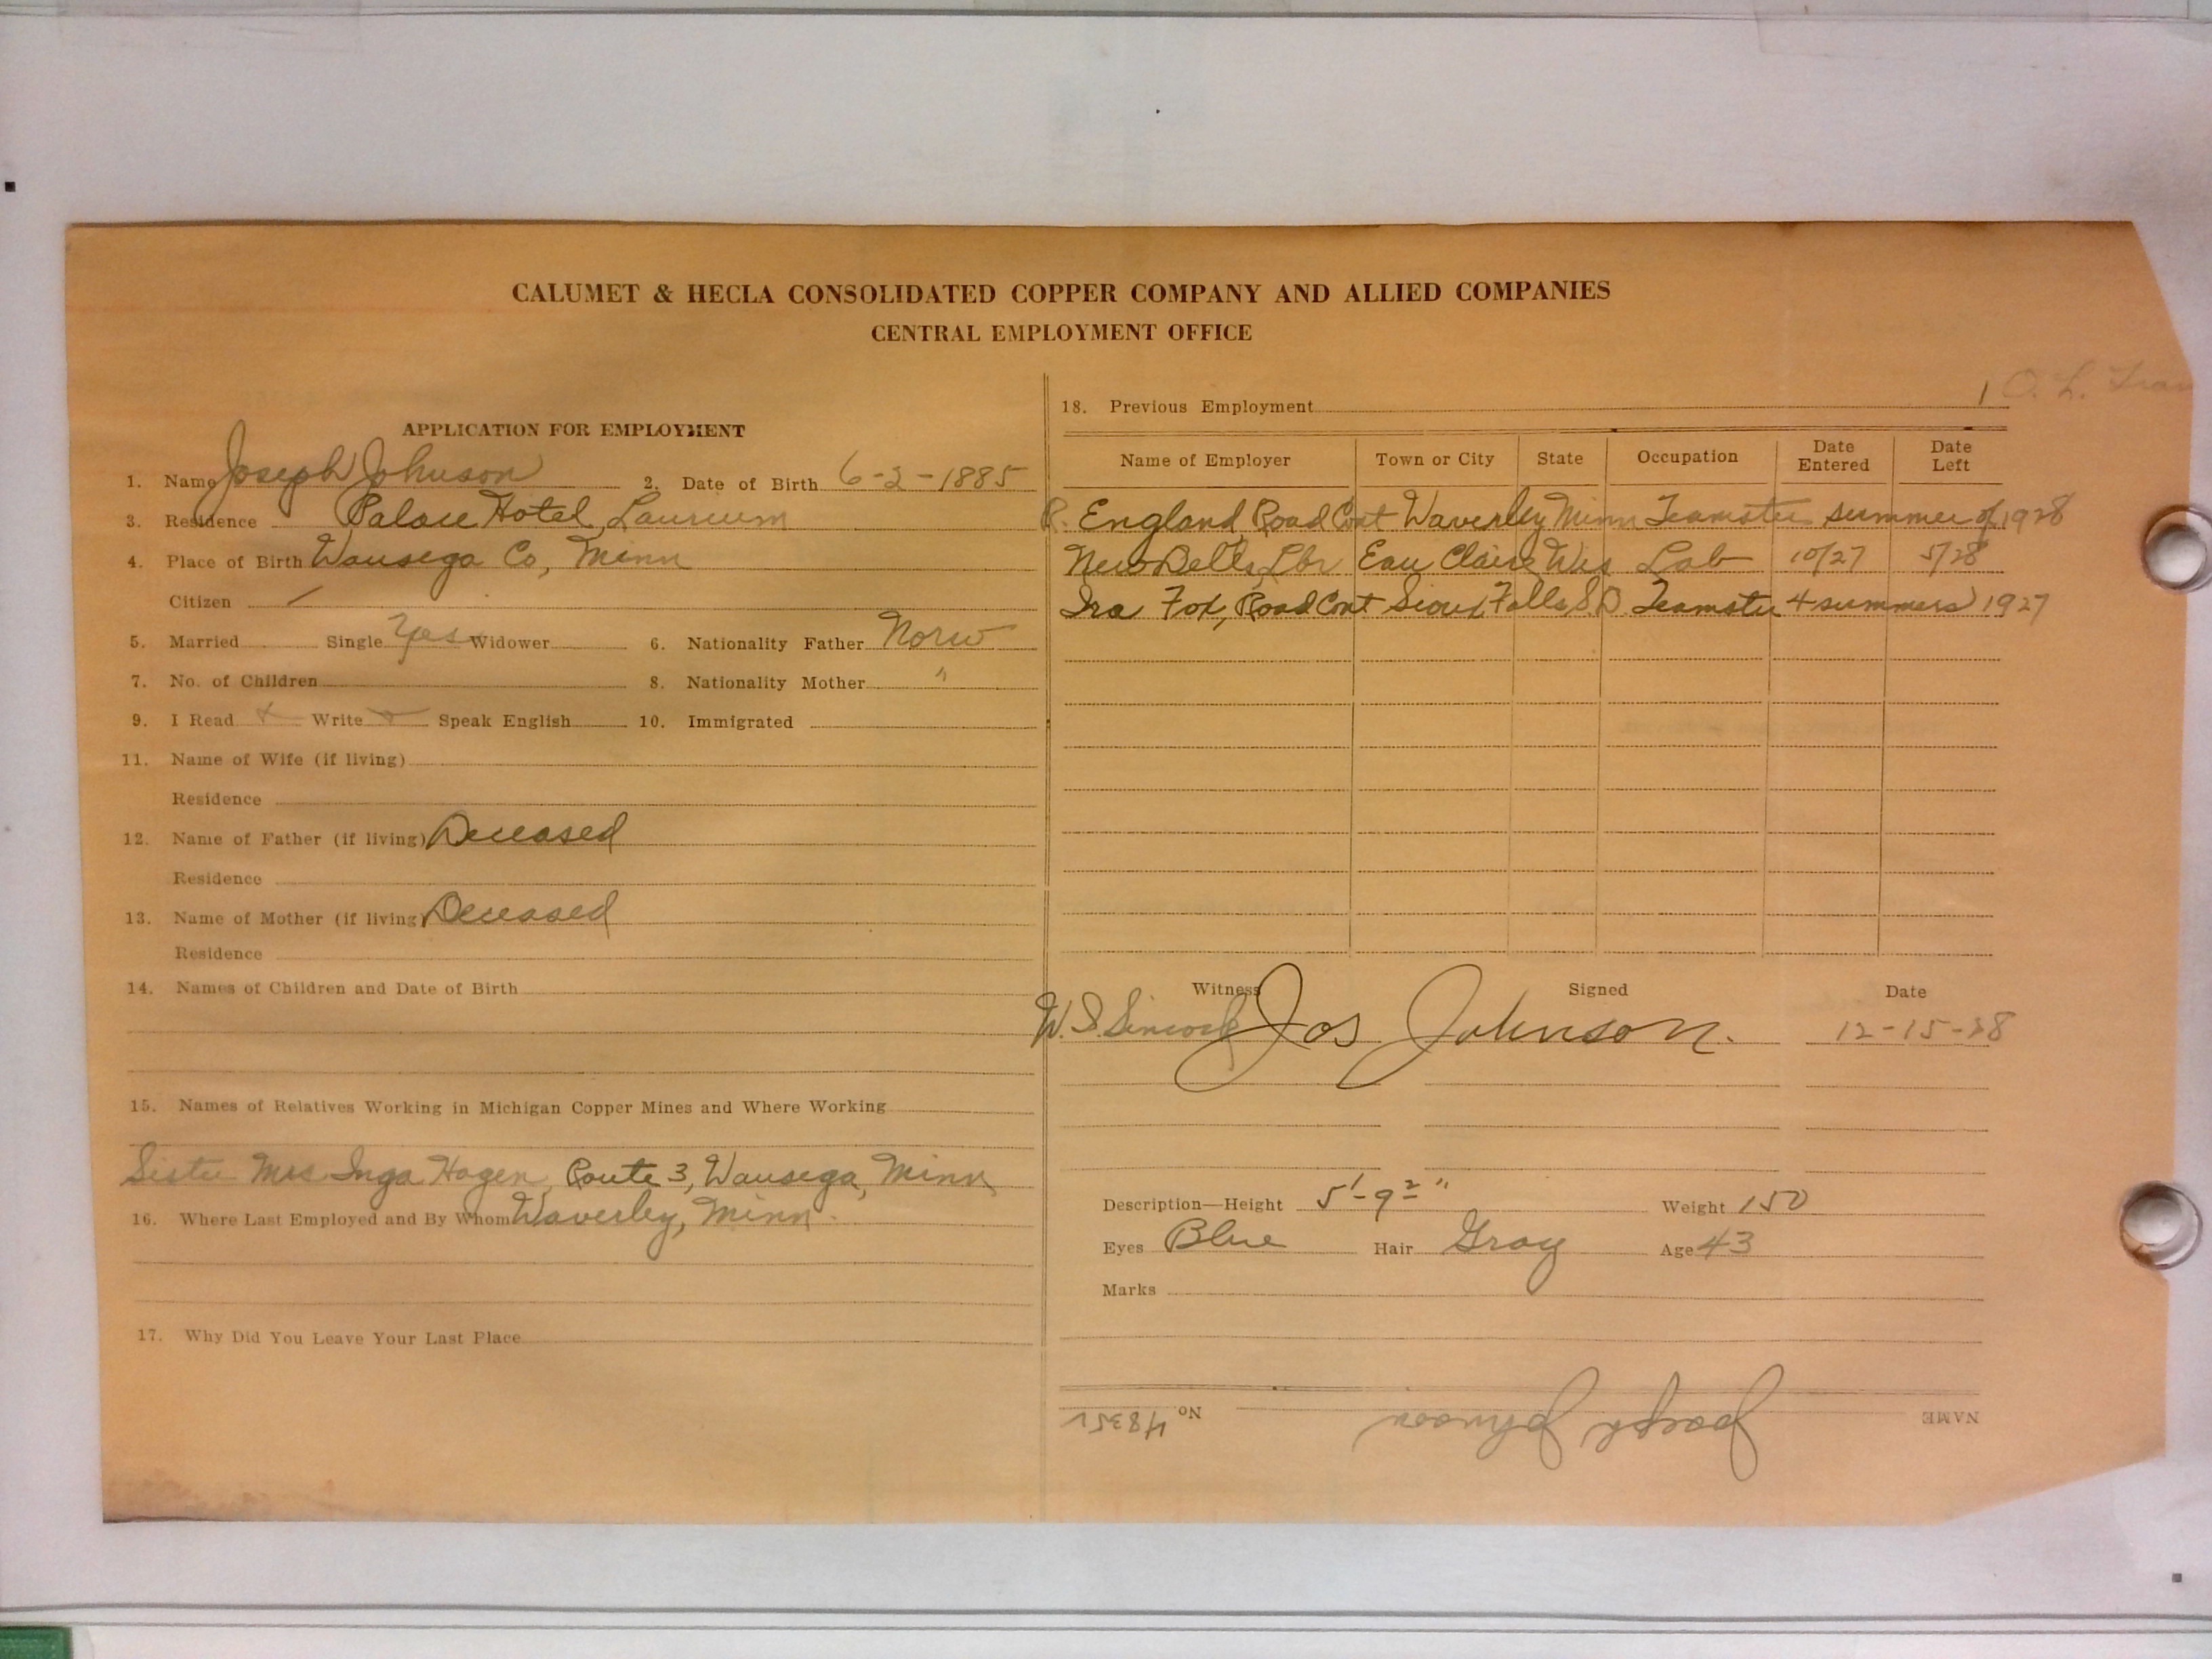 CALUMET & HECLA CONSOLIDATED COPPER COMPANY AND ALLIED COMPANIES
CENTRAL EMPLOYMENT OFFICE
APPLICATION FOR EMPLOYMENT
1. Name Joseph Johnson 2. Date of Birth 6-2-1885
3. Residence Palace Hotel, Laurium
4. Place of Birth Wausega Co, Minn
Citizen /
5. Married Single Yes Widower 6. Nationality Father Norw
7. No. of Children 8. Nationality Mother "
9. I Read Write Speak English 10. Immigrated
11. Name of Wife (if living)
Residence
12. Name of Father (if living) Deceased
Residence
13. Name of Mother (if living) Deceased
Residence
14. Names of Children and Date of Birth
15. Names of Relatives Working in Michigan Copper Mines and Where Working
Sister Mrs Inga Hagen, Route 3, Wausega, Minn
16. Where Last Employed and By Whom Waverley, Minn.
17. Why Did You Leave Your Last Place
O. L.
18. Previous Employment
Name of Employer Town or City State Occupation Date Entered Date Left
R. England, Road Cont Waverley Minn Teamster summer of 1928
New Dells Lbr Eau Claire Wis Lab 10/27 5/28
Ira Fox, Road Cont Sioux Falls S.D. Teamster 4 summers 1927
Witness Signed Date
W. S. Sincock Jos Johnson. 12-15-28
Description—Height 5'-9 2/" Weight 150
Eyes Blue Hair Gray Age 43
Marks
NAME Joseph Johnson No 48351